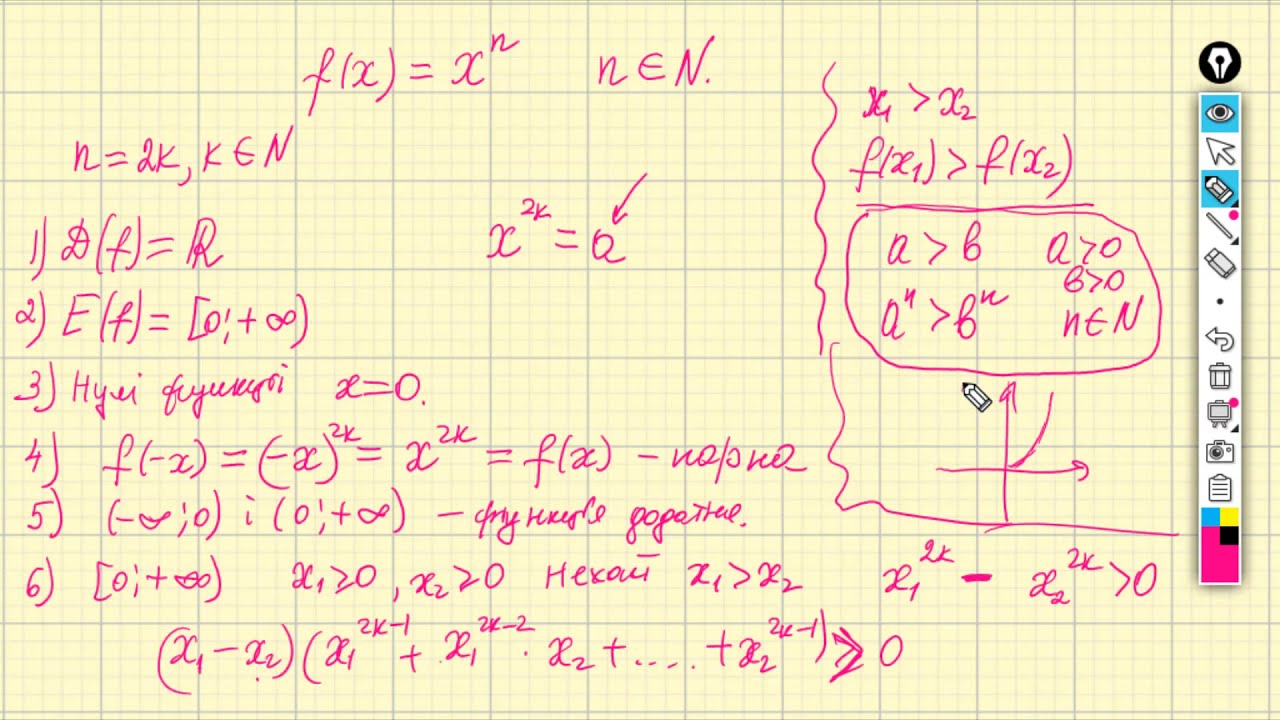 f(x) = xⁿ n ∈ N.
n = 2k, k ∈ N
1) D(f) = ℝ
x²ᵏ = a
2) E(f) = [0; +∞)
3) Нулі функції x = 0.
4) f(-x) = (-x)²ᵏ = x²ᵏ = f(x) – парна
5) (-∞; 0) і (0; +∞) – функція додатня.
6) [0; +∞) x₁ ≥ 0, x₂ ≥ 0 Нехай x₁ > x₂
x₁²ᵏ - x₂²ᵏ > 0
(x₁ - x₂)(x₁²ᵏ⁻¹ + x₁²ᵏ⁻² · x₂ + .... + x₂²ᵏ⁻¹) > 0
x₁ > x₂
f(x₁) > f(x₂)
a > b a > 0
b > 0
aⁿ > bⁿ n ∈ N